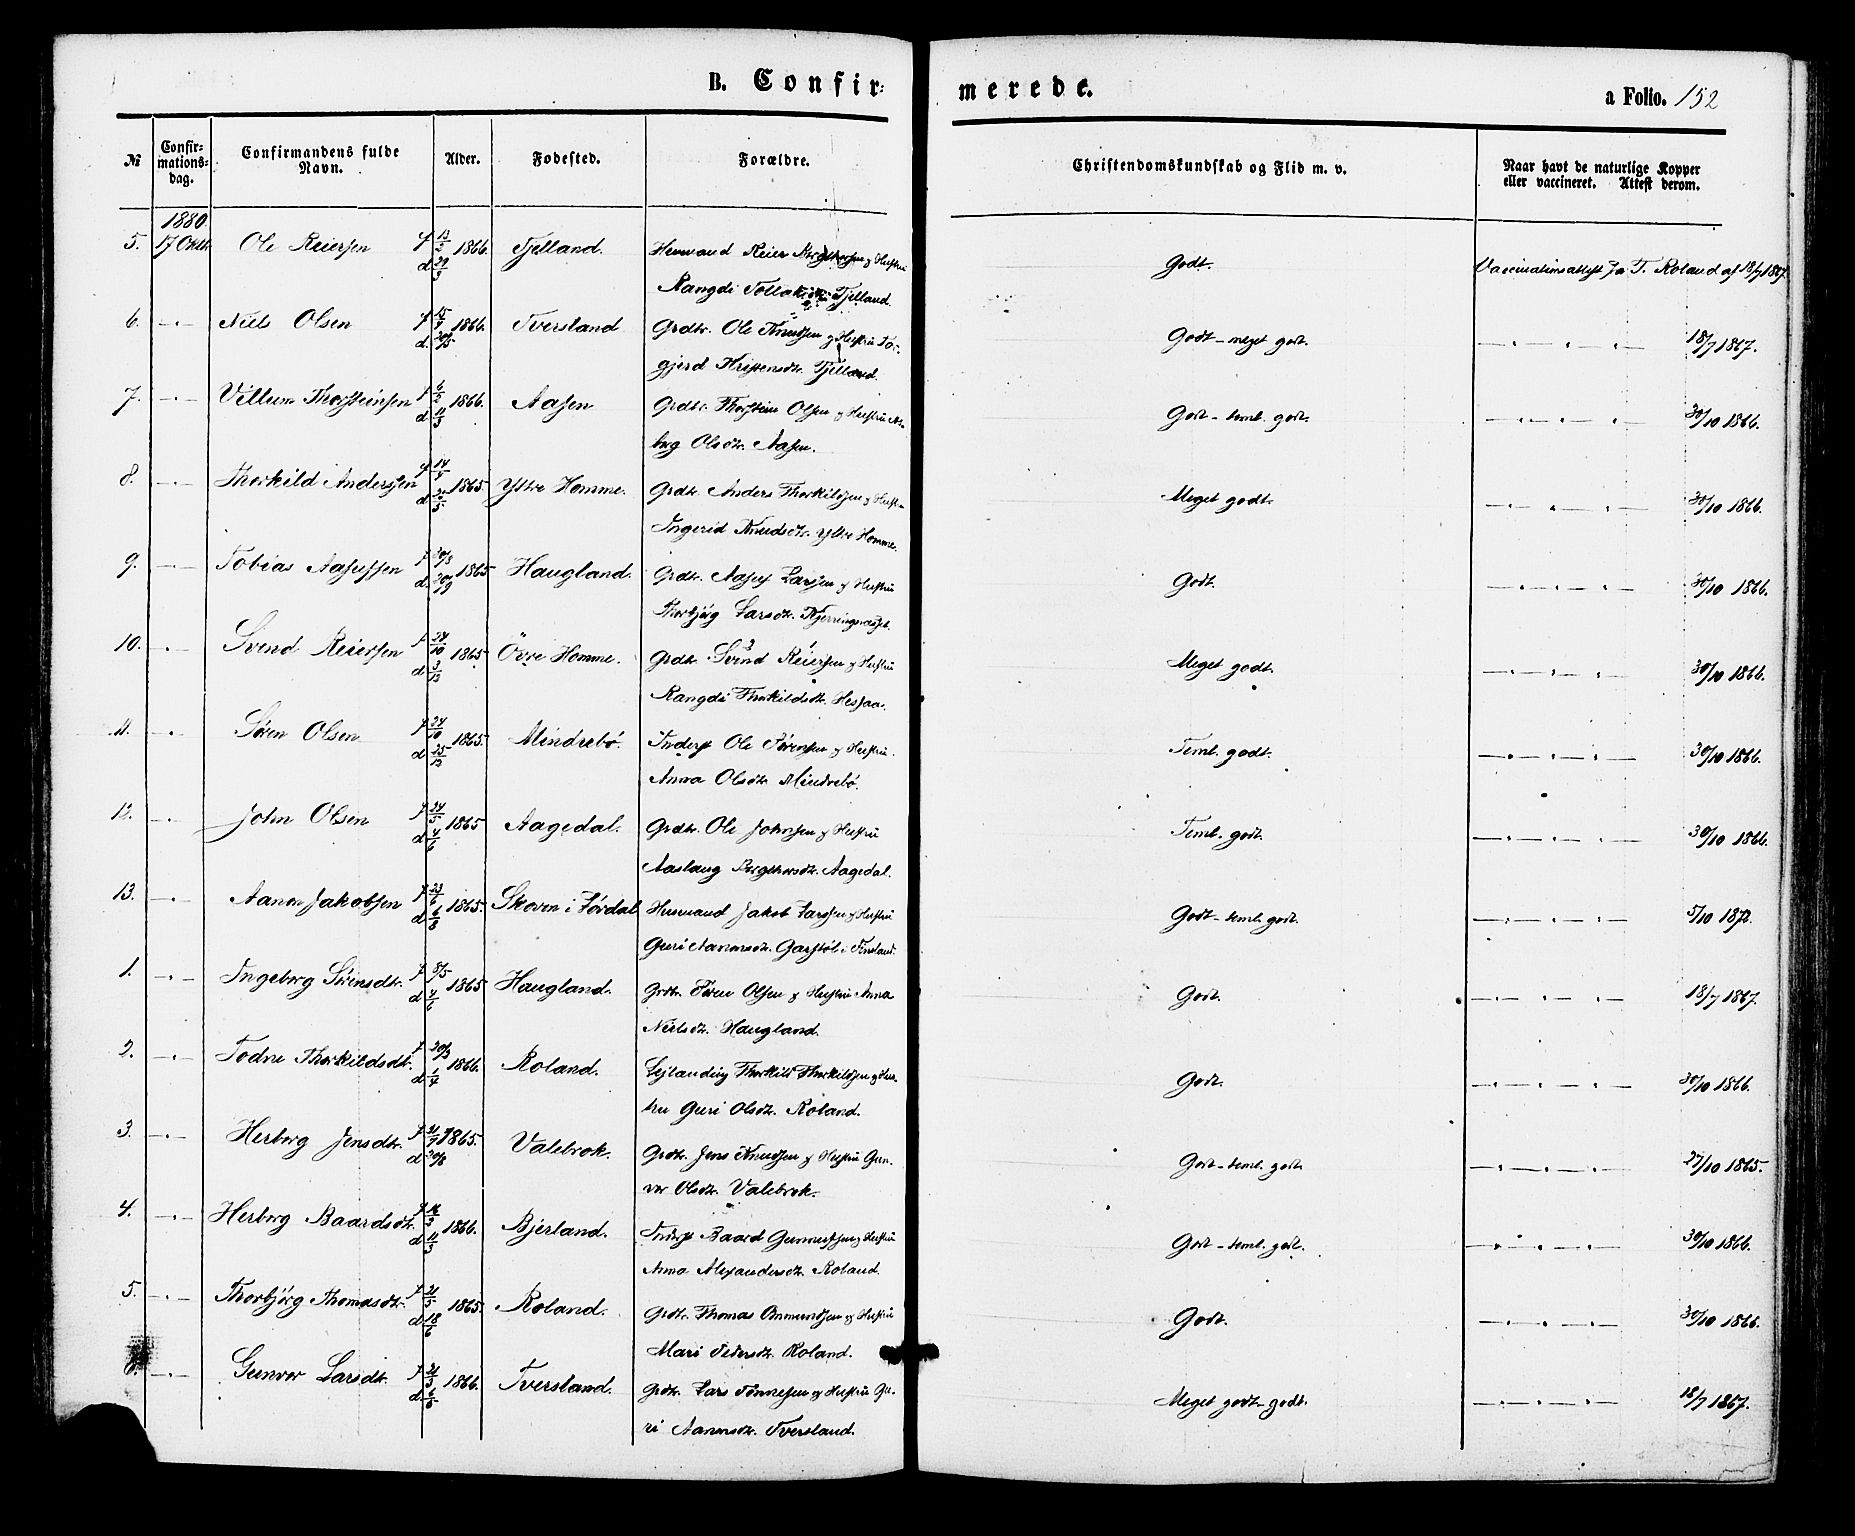 B. Confir=
merede.
a Folio. 152
№
Confir=
mations=
dag.
Confirmandens fulde
Navn.
Alder.
Fødested.
Forældre.
Christendomskundskab og Flid m. v.
Naar havt de naturlige Kopper
eller vaccineret. Attest derom.
1880.
5. 17 Oktb. Ole Reiersen f 13/2 1866. d 29/3 Fjelland. Husmand Reier Bergthorsen og Hustru
Rangdi Fjelland. Godt. Vaccinationsattest fra T. Roland af 18/7 1867.
6. — Niels Olsen f 15/4 1866. d 20/5 Tversland Grdbr. Ole Knudsen og Hustru Tor-
gjerd Kristensdtr. Fjelland. Godt - meget godt. 18/7 1867.
7. — Villum Thorsteinsen f 6/2 1866. d 11/3 Aasen Grdbr. Thorstein Olsen og Hustru
Olsdtr. Aasen. Godt - teml. godt. 30/10 1866.
8. — Thorkild Andersen f 14/4 1865. d /5 Ytre Homme. Grdbr. Anders Thorkildsen og Hustru
Ingerid Knudsdtr. Ytre Homme. Meget godt. 30/10 1866.
9. — Tobias Aasulfsen f 30/3 1865 d Haugland. Grdbr. Aasulf Larsen og Hustru
Thorbjørg Larsdtr. Godt. 30/10 1866.
10. — Svend Reiersen f 24/10 1865 d 3/12 Övre Homme. Grdbr. Svend Reiersen og Hustru
Rangdi Thorkildsdtr. Hessaa. Meget godt. 30/10 1866.
11. — Søren Olsen f 24/10 1865. d 25/12 Mindrebö. Inderst Ole Sørensen og Hustru
Anna Olsdtr. Mindrebö. Teml. godt. 30/10 1866.
12. — John Olsen f 24/5 1865 d 4/6 Aagedal. Grdbr. Ole Johnsen og Hustru
Aaslaug Bergthorsdtr. Aagedal. Teml. godt. 30/10 1866.
13. — Aanon Jakobsen f 23/6 1865. d 6/8 Skoven i Fördal Husmand Jakob Larsen og Hustru
Guri Aanonsdtr. Garstöl i Finsland. Godt - teml. godt. 5/10 1872.
1. — Ingeborg Sörensdtr. f 8/5 1865 d 4/6 Haugland. Grdbr. Sören Olsen og Hustru Anna
Nielsdtr. Haugland. Godt. 18/7 1867.
2. — Todne Thorkildsdtr. f 20/3 1866. d 1/4 Roland. Lejlænding Thorkild Thorkildsen og Hus-
tru Guri Olsdtr. Roland. Godt. 30/10 1866.
3. — Herborg Jensdtr. f 21/7 1865. d 20/8 Valebrok. Grdbr. Jens Knudsen og Hustru Gun-
vor Olsdtr. Valebrok. Godt - teml. godt. 27/10 1865.
4. — Herborg Baardsdtr. f 1866. d 11/3 Bjerland. Inderst Baard Gunnufsen og Hustru
Anna Alexandersdtr. Roland. Godt - teml. godt. 30/10 1866.
5. — Thorbjörg Thomasdtr. f 21/5 1865. d 18/6 Roland. Grdbr. Thomas Ommundsen og Hustru
Mari Pedersdtr. Roland. Godt. 30/10 1866.
6. — Gunvor Larsdtr. f 21/3 1866. d 6/5 Tversland. Grdbr. Lars Tönnesen og Hustru Gu-
ri Aanonsdtr. Tversland. Meget godt - godt. 18/7 1867.